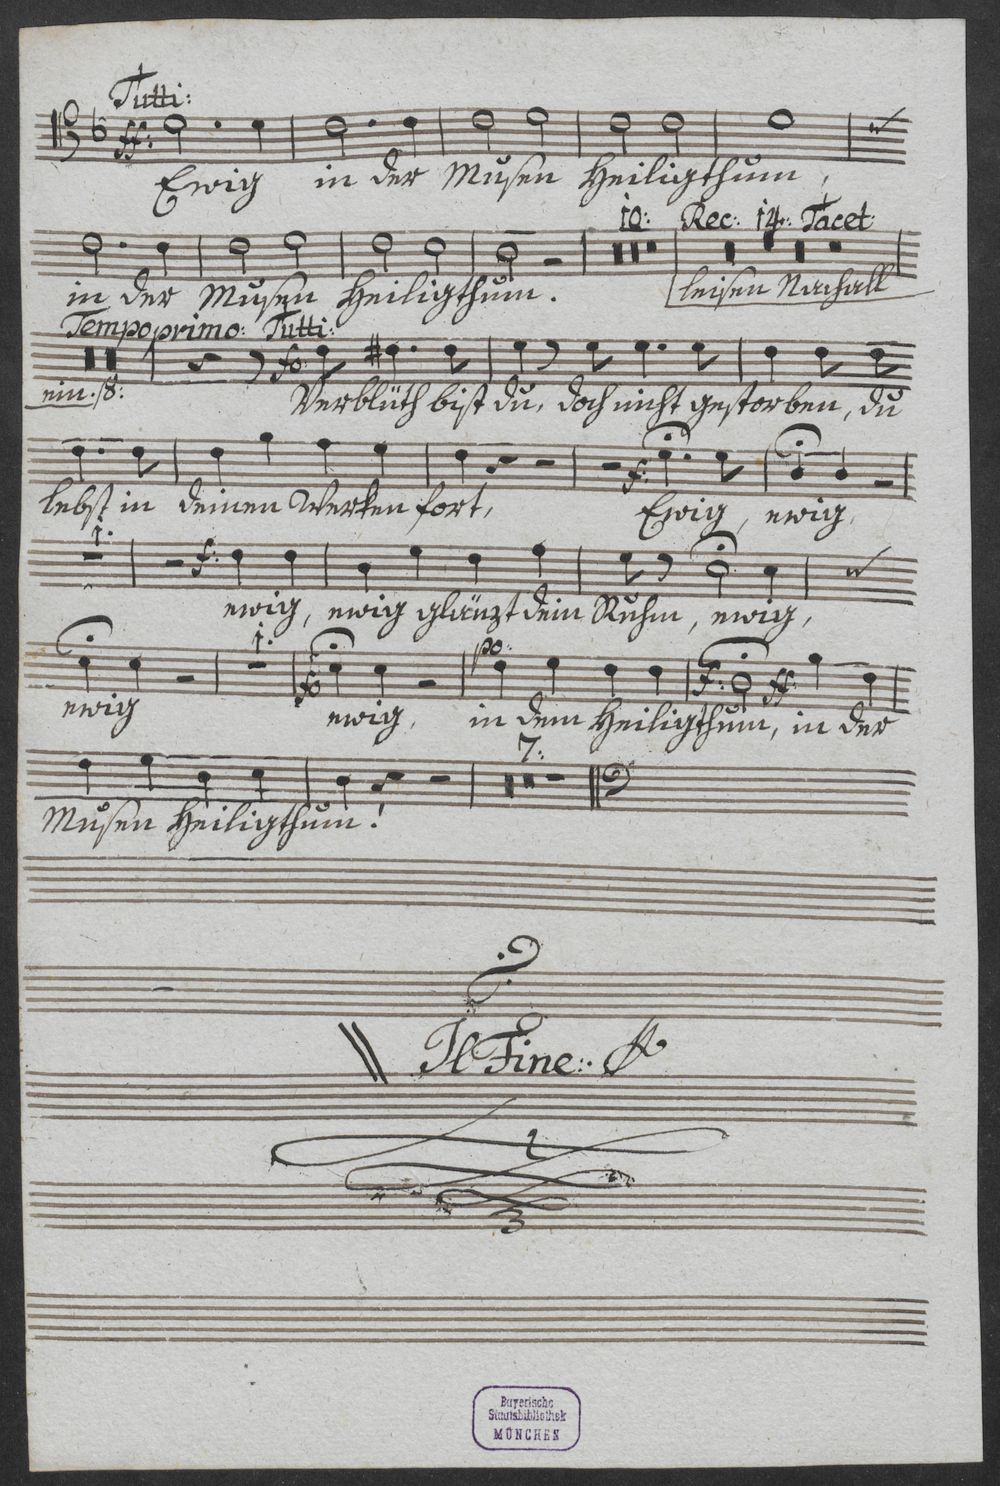 Tutti:
ff:
Ewig in der Musen Heiligthum,
10: Rec: 14: Tacet:
in der Musen Heiligthum. leisen Nachhall
Tempo primo: Tutti:
fo:
ein. 8:
Verblüth bist du, doch nicht gestorben, du
f:
lebst in deinen Werken fort, Ewig, ewig,
1.
f:
ewig, ewig glänzt dein Ruhm, ewig,
1. po:
fo f: ff:
ewig ewig, in dem Heiligthum, in der
7:
Musen Heiligthum!
Il Fine:
Bayerische
Staatsbibliothek
MÜNCHEN